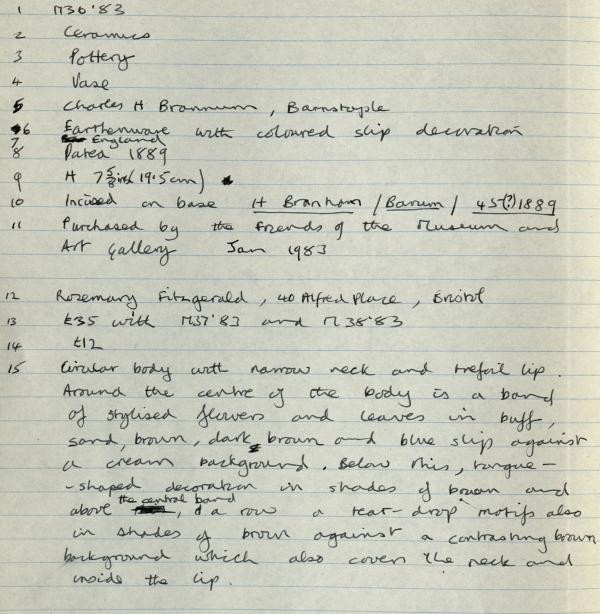 1 M36'83
2 Ceramics
3 Pottery
4 Vase
5 Charles H Brannum, Barnstaple
6 Earthenware with coloured slip decoration
7 England
8 Dated 1889
9 H 7 5/8 ins (19.5cm)
10 Incised on base H Branham / Barum / 45(?) 1889
11 Purchased by the Friends of the Museum and
Art Gallery Jan 1983
12 Rosemary Fitzgerald, 40 Alfred Place, Bristol
13 £35 with M37'83 and M38'83
14 £12
15 Circular body with narrow neck and trefoil lip.
Around the centre of the body is a band
of stylised flowers and leaves in buff,
sand, brown, dark brown and blue slip against
a cream background. Below this, tongue-
-shaped decoration in shades of brown and
above the central band, a row a tear-drop motifs also
in shades of brown against a contrasting brown
background which also covers the neck and
inside the lip.